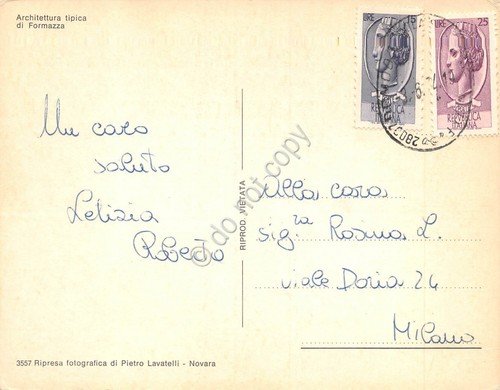 Architettura tipica
di Formazza
LIRE 15
LIRE 25
REPUBBLICA
ITALIANA
28037
Un caro
saluto
Letizia
Roberto
RIPROD. VIETATA
© do not copy
Alla cara
sig.ra Rosina L.
viale Doria 24
Milano
3557 Ripresa fotografica di Pietro Lavatelli - Novara